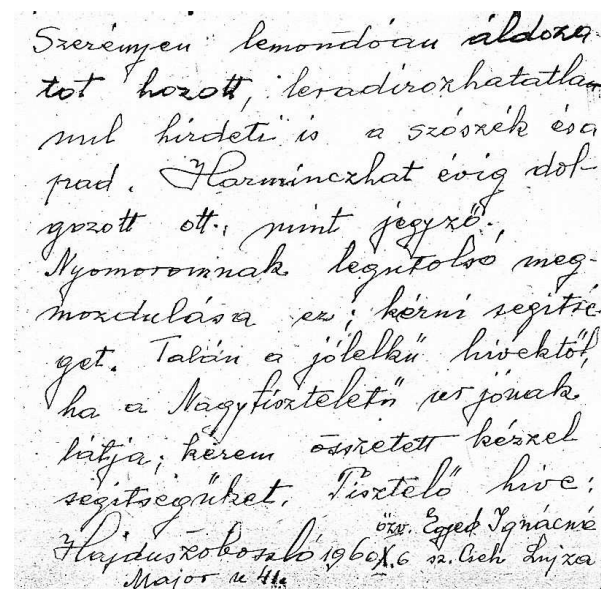 Szerényen lemondóan áldoza
tot hozott, leradírozhatatla
nul hirdeti is a szószék ésa
pad. Harminczhat évig dol-
gozott ott., mint jegyző.
Nyomoromnak legutolsó meg-
mozdulása ez; kérni segitsé
get. Talán a jólelkü hivektől,
ha a Nagytiszteletü ur jónak
látja; kérem összetett kézzel
segitségüket. Tisztelő hive:
özv. Eged Ignácné
Hajduszoboszló 1960 X.6 sz. Cseh Lujza
Major u 41.